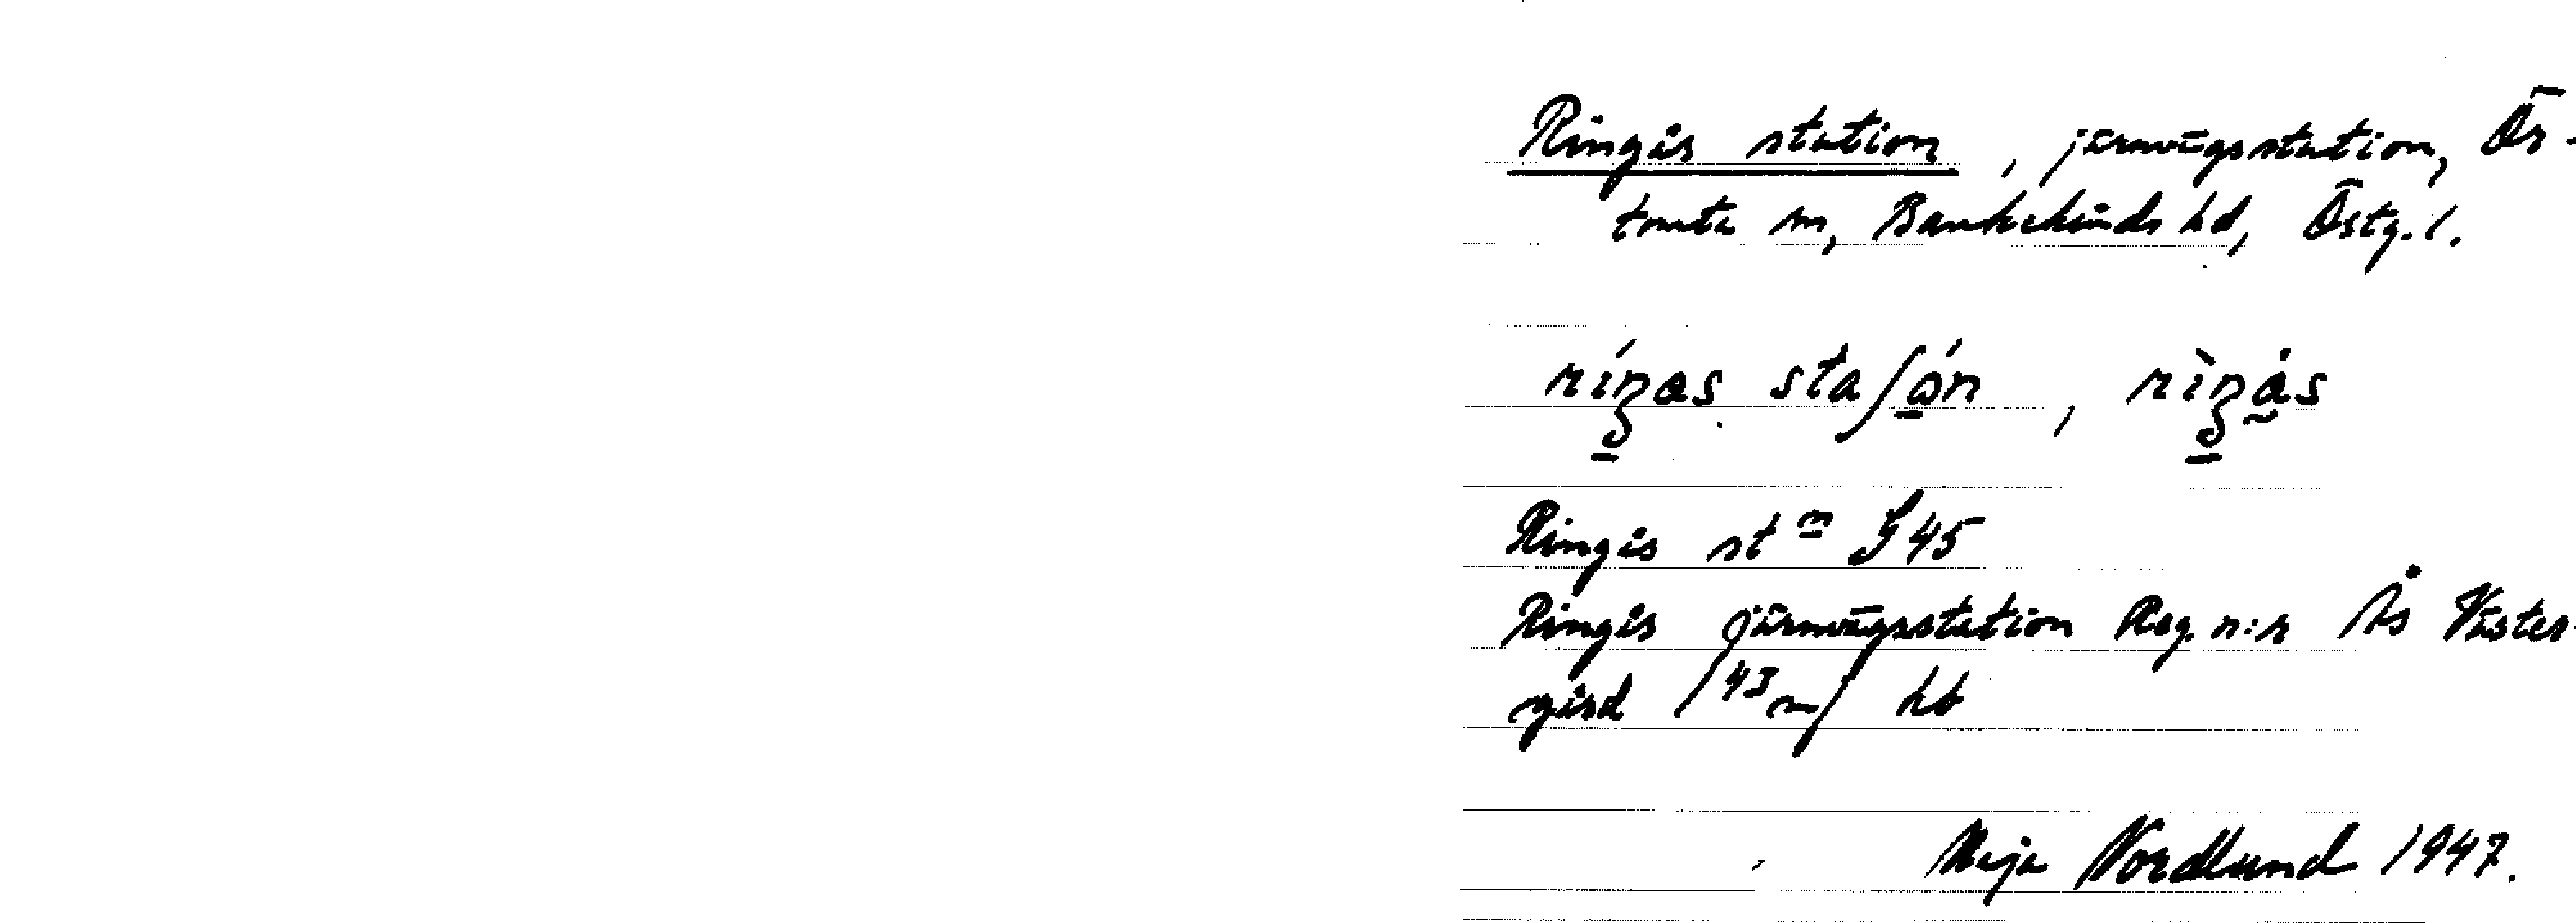 Ringås station, järnvägsstation, Ör-
tomta sn, Bankekinds hd, Östg. l.
Ringås stn J45
Ringås järnvägsstation Reg. n:r Ås Väster-
gård hb
Maja Nordlund 1947.